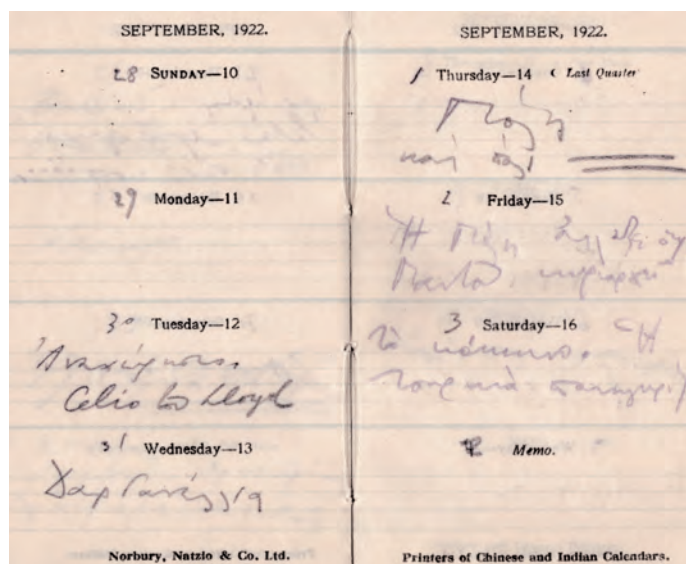 SEPTEMBER, 1922.
28 SUNDAY—10
29 Monday—11
30 Tuesday—12
Ἀναχώρησις
Celio του Lloyd
31 Wednesday—13
Δαρδανέλλια
Norbury, Natzio & Co. Ltd.
SEPTEMBER, 1922.
1 Thursday—14 ☾ Last Quarter
Πόλη
καὶ πάλι
2 Friday—15
Ἡ Πόλη
Παντοῦ κυριαρχεῖ
3 Saturday—16
τὸ κόκκινο. Ἡ
τουρκιὰ
Memo.
Printers of Chinese and Indian Calendars.